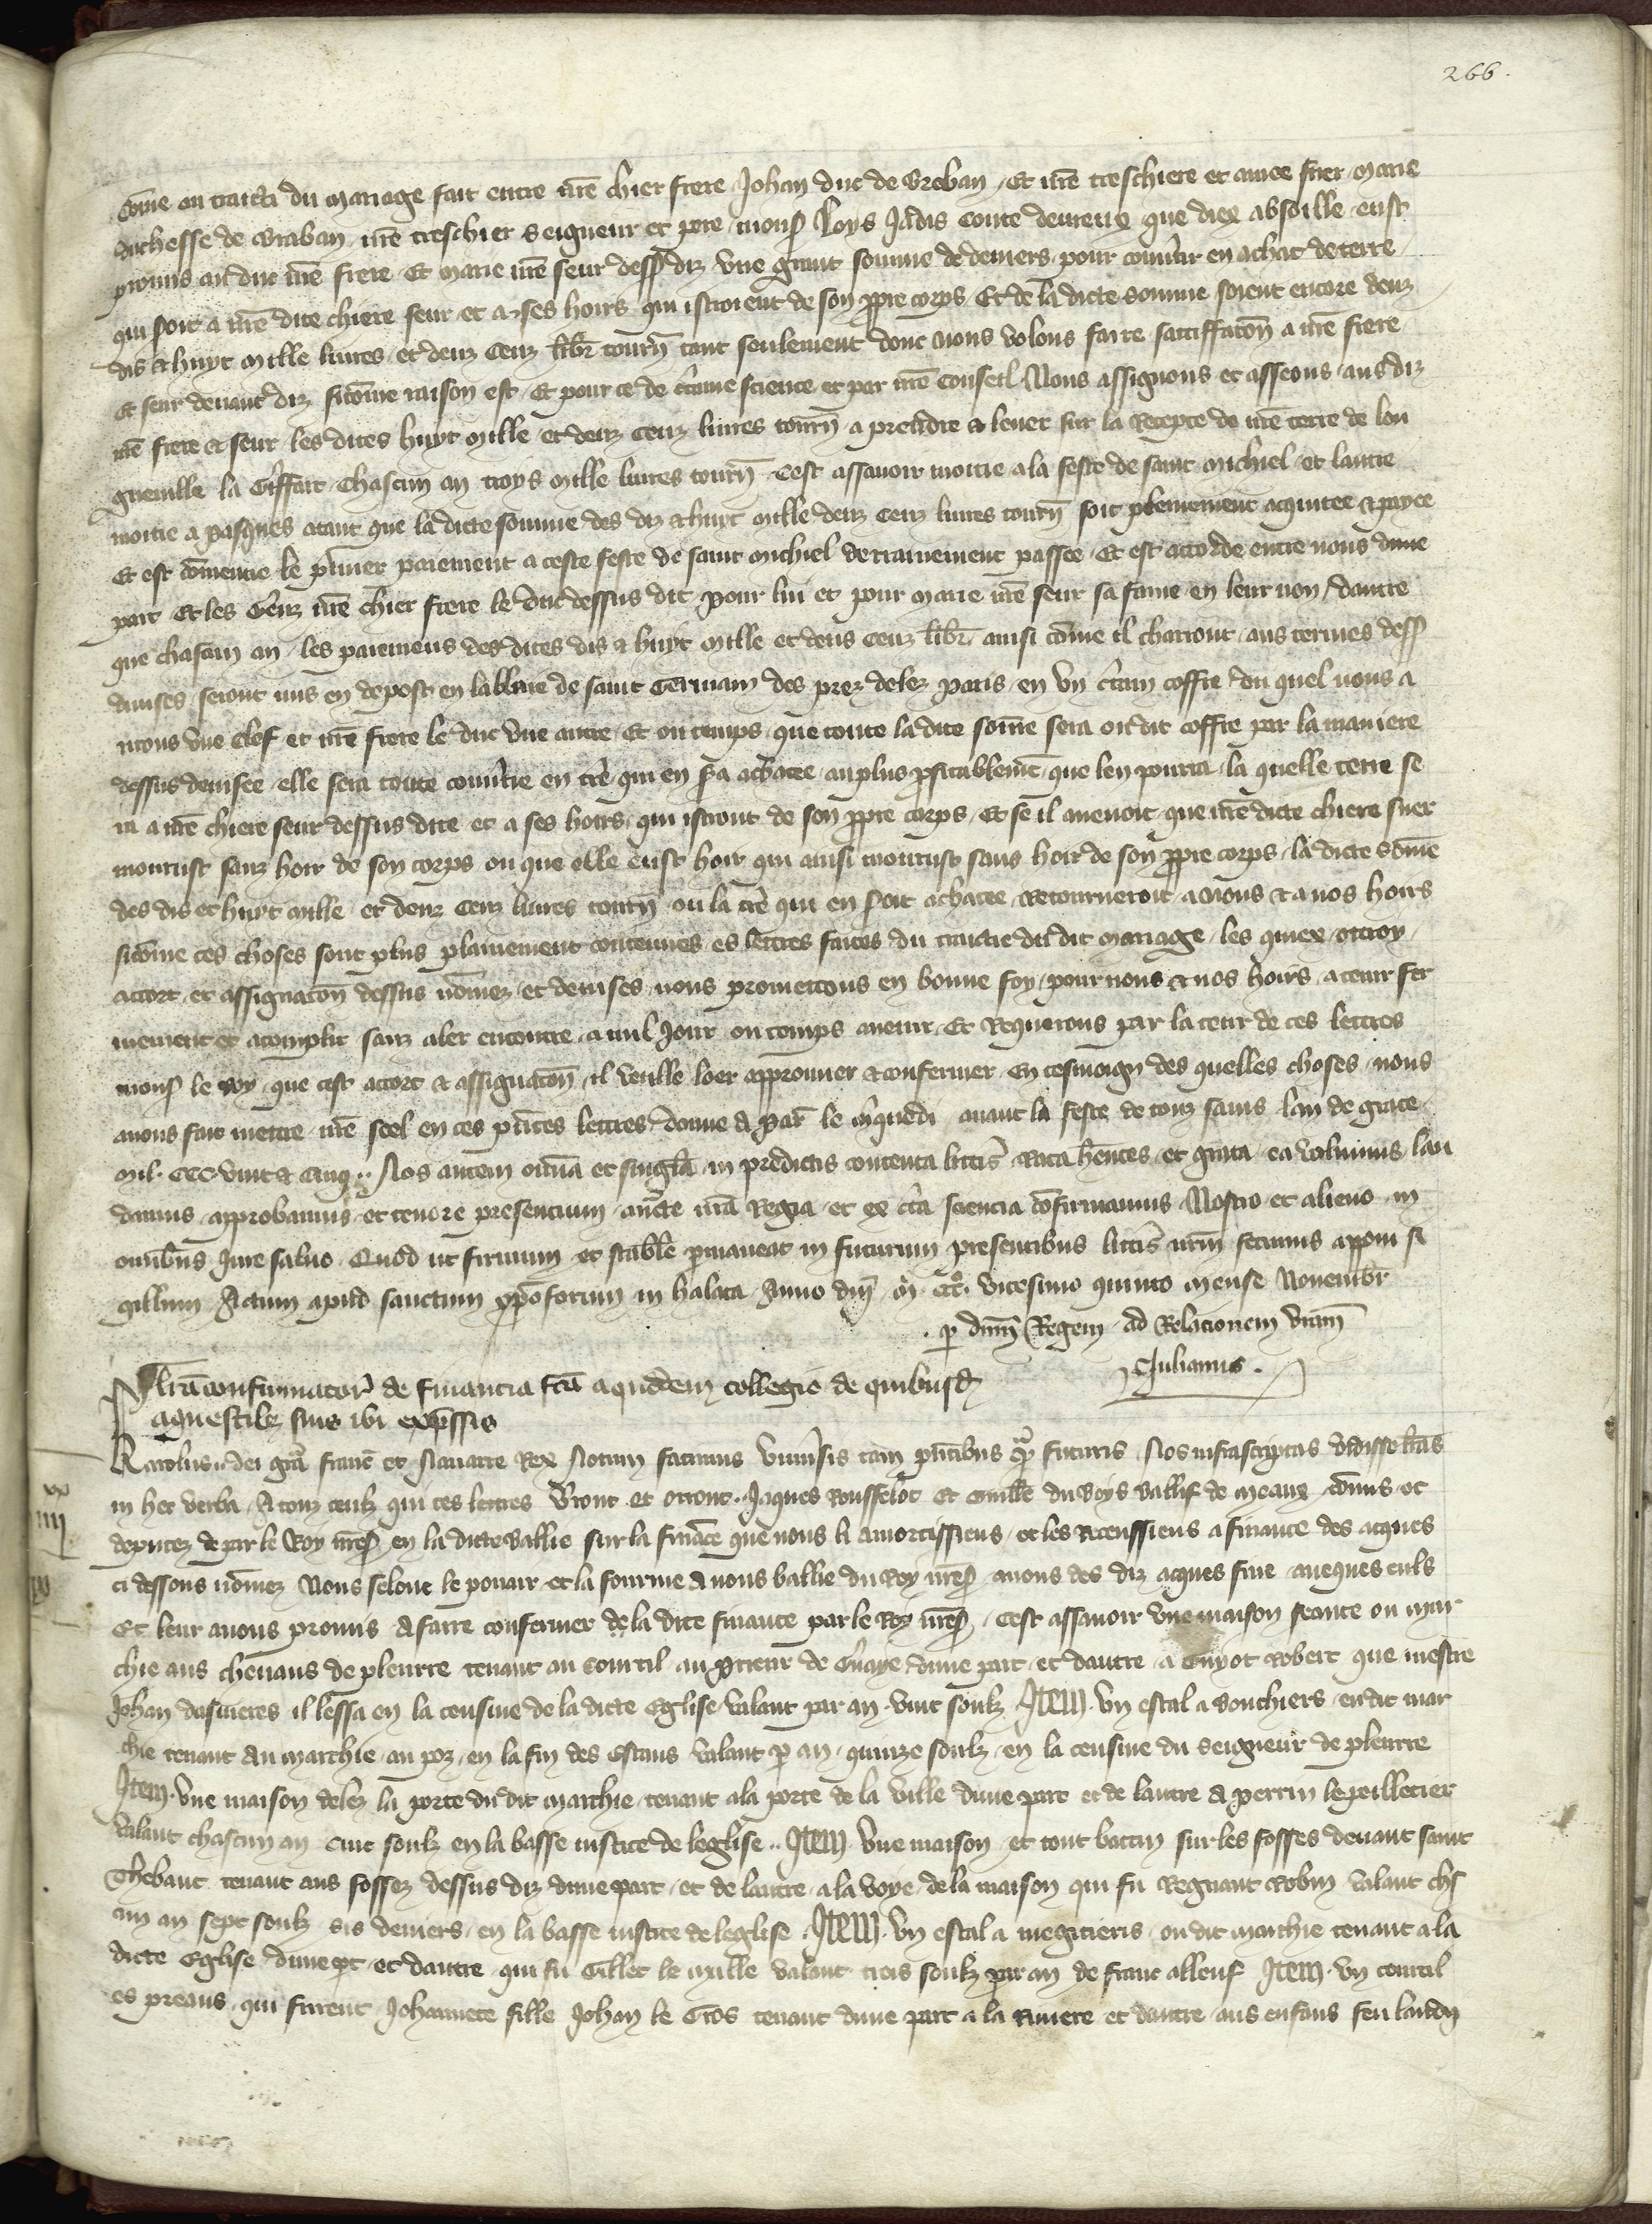 266.
Come ou traictie du mariage fait entre nre chier frere Johan duc de Breban, Et nre treschiere et amee suer Marie
duchesse de Braban nre treschier seigneur et pere mons Loys Jadis Conte devreux que diex absoille eust
promis au duc nre frere Et Marie nre seur dess diz une grant somme de deniers pour convtir en achat de terre
qui soit a nre dite chiere seur et a ses hoirs qui istroient de son ppre corps Et de la dicte somme soient encore deuz
dis & huyt mille livres et deuz cenz libr tourn tant seulement dont nous volons faire satiffacon a nre frere
Et seur devant diz sicome raison est Et pour ce de ctaine science et par nre conseil Nous assignons et asseons aus diz
nre frere & seur les dites huyt mille et deuz cenz livres tourn a prendre & lever sur la Recepte de nre terre de lon
gueville la Giffart Chascun an troys mille livres tourn Cest assavoir moitie a la feste de saint Michiel et lautre
moitie a pasques atant que la dicte somme des diz & huyt mille deuz cenz livres tourn soit plenement aquitee & payee
Et est comencie le pmier paiement a ceste feste de saint Michiel derrainement passee Et est accorde entre nous dune
part Et les Genz nre chier frere le duc dessus dit pour lui et pour Marie nre seur sa fame en leur non dautre
que chascun an les paiemens des dites dis & huyt mille et deus cenz libr ainsi come il charront aus termes dess
divises seront mis en depost en labbaie de saint Germain des prez delez Paris en un ctain coffre du quel nous a
urons une clef et nre frere le duc une autre Et ou temps que toute la dite some sera oudit coffre par la maniere
dessus devisee elle sera toute convtie en tre qui en sa achatee au plus pfitablemt que len pourra la quelle terre se
ra a nre chiere seur dessus dite et a ses hoirs qui istront de son ppre corps Et se il avenoit que nre dicte chiere suer
mourust sanz hoir de son corps ou que elle eust hoir qui ainsi mourust sans hoir de son ppre corps la dicte some
des dis et huyt mille et deuz cenz livres tourn ou la tre qui en soit achatee Retourneroit a nous & a nos hoirs
sicome ces choses sont plus plainement contenues es lettres faites du traictie du dit mariage les quiex ottroy
accort et assignacon dessus nomez et devises nous promettons en bonne foy pour nous & nos hoirs a tenir fer
mement et acomplir sanz aler encontre a nul Jour ou temps avenir Et Requerons par la teur de ces lettres
mons le Roy que cest accort & assignacon il veulle loer approuver & confermer En tesmoign des quelles choses nous
avons fait mettre nre seel en ces pntes lettres donne a Par le mquedi avant la feste de touz sains lan de grace
mil CCC vint & cinq Nos autem omia et singla in predictis contenta littis Rata hentes et grata ea volumus lau
damus approbamus et tenore presencium aucte nra Regia et ex cta sciencia confirmamus Nostro et alieno in
omibus Jure salvo Quod ut firmum et stabile pmaneat in futurum presentibus littis nrm fecimus apponi si
gillum Actum apud sanctum xpoforum in halata Anno dni M CCCo vicesimo quinto mense Novembr
p dnm Regem ad Relacionem vram
Julianus
lra confirmator de financia fca a quodem collegio de quibusd
aquestibz suis ibi expssis
Karolus dei gra franc et Navarre Rex Notum facimus univsis tam pntibus qm futuris Nos infrascriptas vidisse lras
in hec verba A touz ceulz qui ces lettres vront et orront Jaques Rousselot Et Guille du Boys Ballif de Meaux comis et
deputez de par le Roy nres en la dicte Ballie sur la finace que nous li amortissiens et les Receussiens a finance des acques
ci dessous nomez Nous selonc le pouair et la fourme a nous ballie du Roy nres avons des diz acques fine aveques euls
Et leur avons promis a faire confermer de la dite finance par le Roy nres Cest assavoir une maison seante ou mar
chie aus chevaus de pleurre tenant au courtil au prieur de Graye dune part et dautre a Guyot Robert que mestre
Johan dasnieres il lessa en la censive de la dicte Eglise valant par an vint soulz Item un estal a bouchiers oudit mar
chie tenant au marchie au poz en la fin des estaus valant p an quinze soulz en la censive du seigneur de pleurre
Item une maison delez la porte du dit marchie tenant a la porte de la ville dune part et de lautre a perrin le peilletier
valant chascun an cint soulz en la basse iustice de leglise Item une maison et tout batein sur les fosses devant saint
Thebaut tenant aus fossez dessus diz dune part et de lautre a la voye de la maison qui fu Regnaut Robin valant chs
cun an sept soulz sis deniers en la basse iustice de leglise Item un estal a megicieris oudit marchie tenant a la
dicte Eglise dune pt et dautre qui fu Gillet le mille valant trois soulz par an de franc alleuf Item un courtil
es preaus qui furent Johannete fille Johan le Gros tenant dune part a la Riviere et dautre aus enfans feu